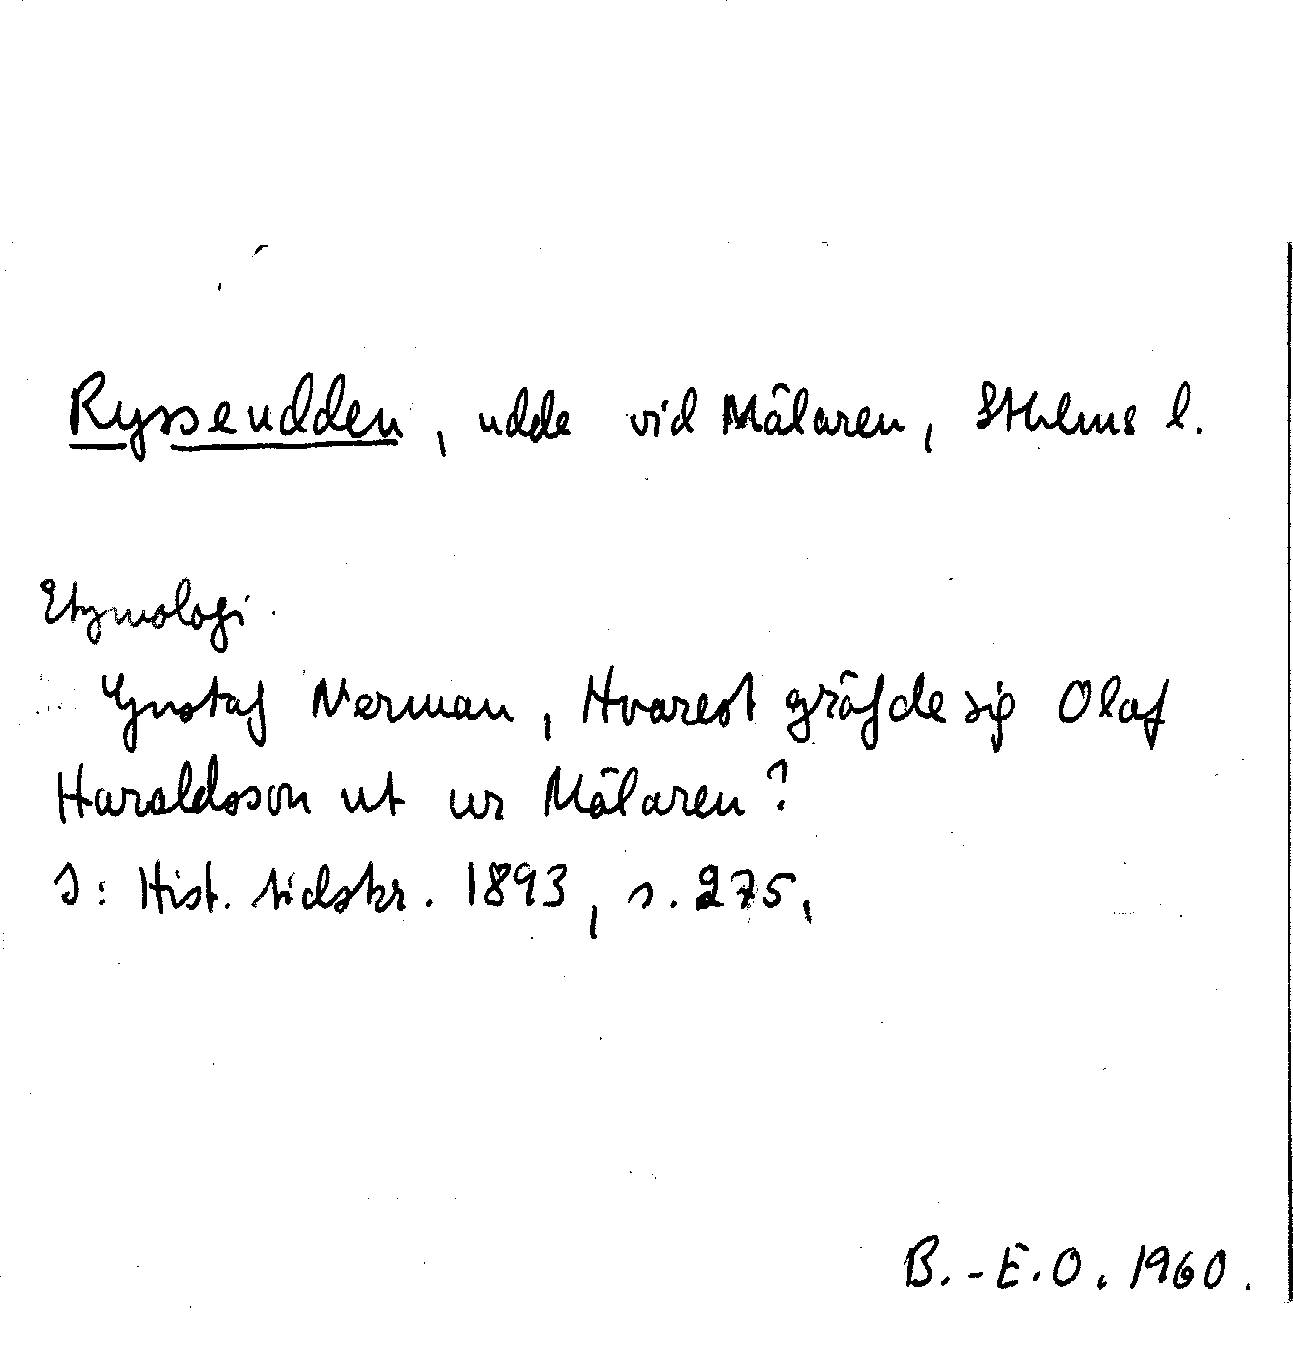 Ryssudden, udde vid Mälaren, Sthlms l.
Etymologi.
Gustaf Nerman, Hvarest gräfde sig Olaf
Haraldsson ut ur Mälaren?
I: Hist. tidskr. 1893, s. 275,
B.-E.O. 1960.